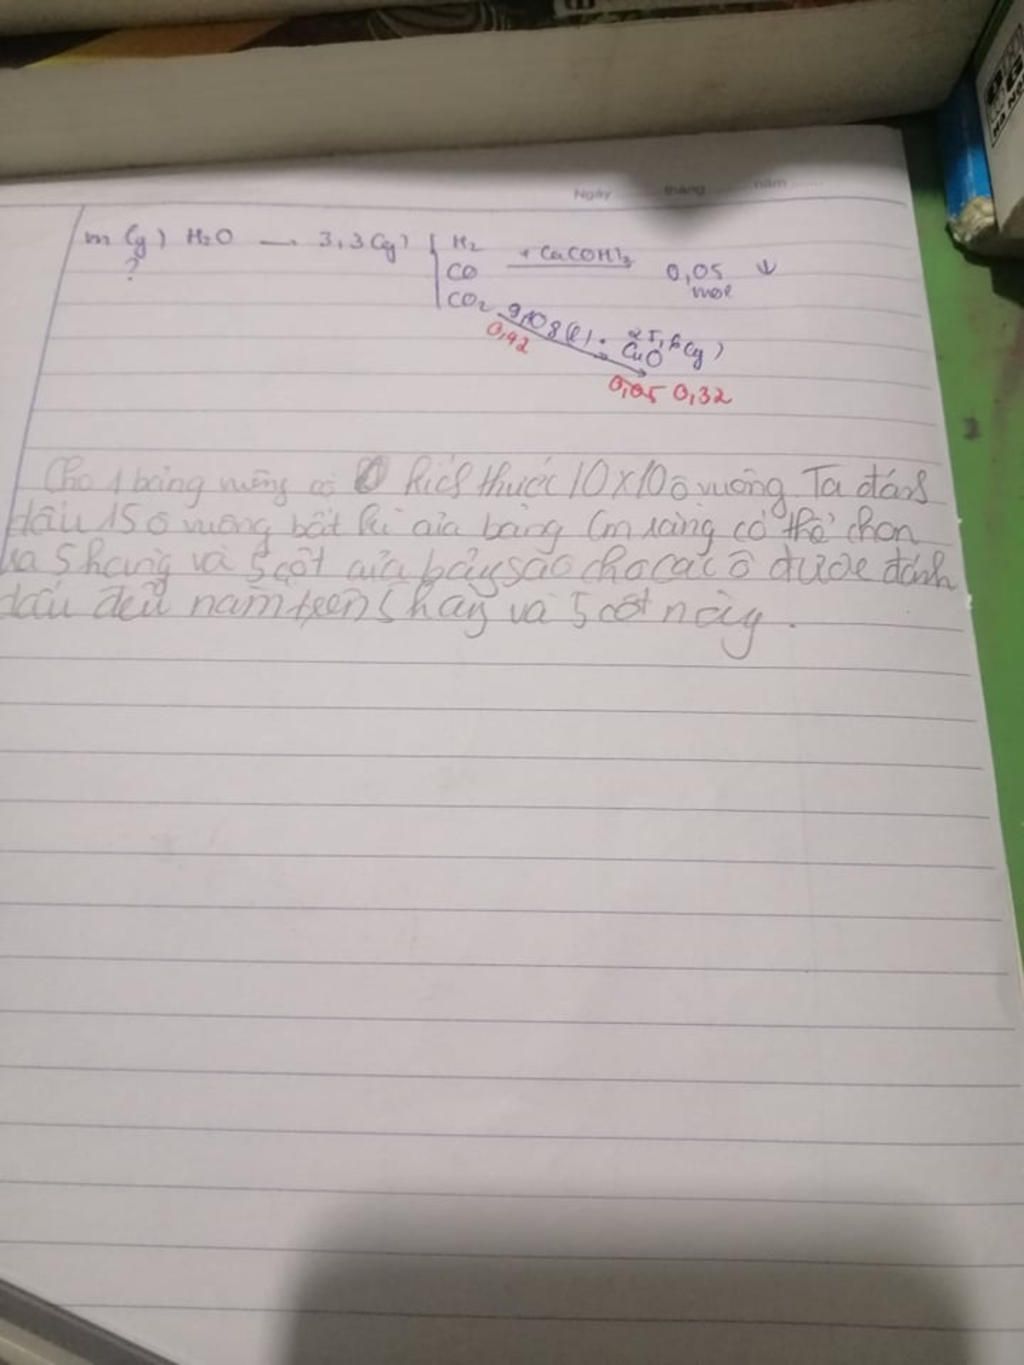 Ngày tháng năm
m (g) H2O — 3,3 (g) { H2 + Ca(OH)2 0,05 ↓
? CO mol
CO2 (l) CuO (g)
0,42
0,05 0,32
Cho 1 bảng vuông có kích thước 10x10 ô vuông. Ta đánh
dấu 15 ô vuông bất kì của bảng Cm rằng có thể chọn
ra 5 hàng và 5 cột của bảng sao cho các ô được đánh
dấu đều nằm trên 5 hàng và 5 cột này.